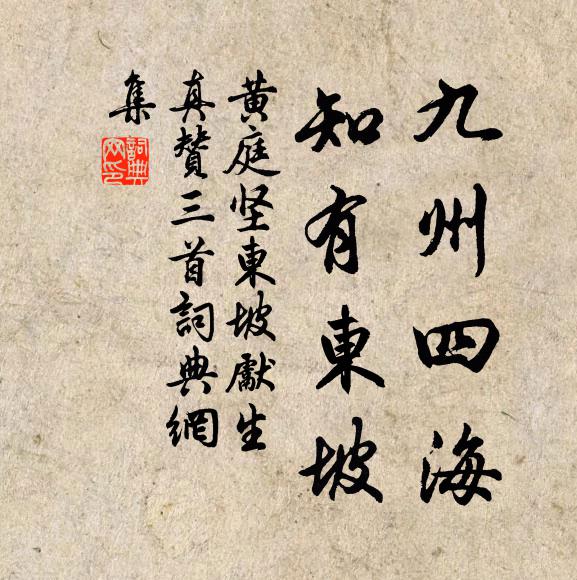 九州四海
知有東坡
黄庭坚東坡獻生
真赞三首詞典網
集
詞典網印